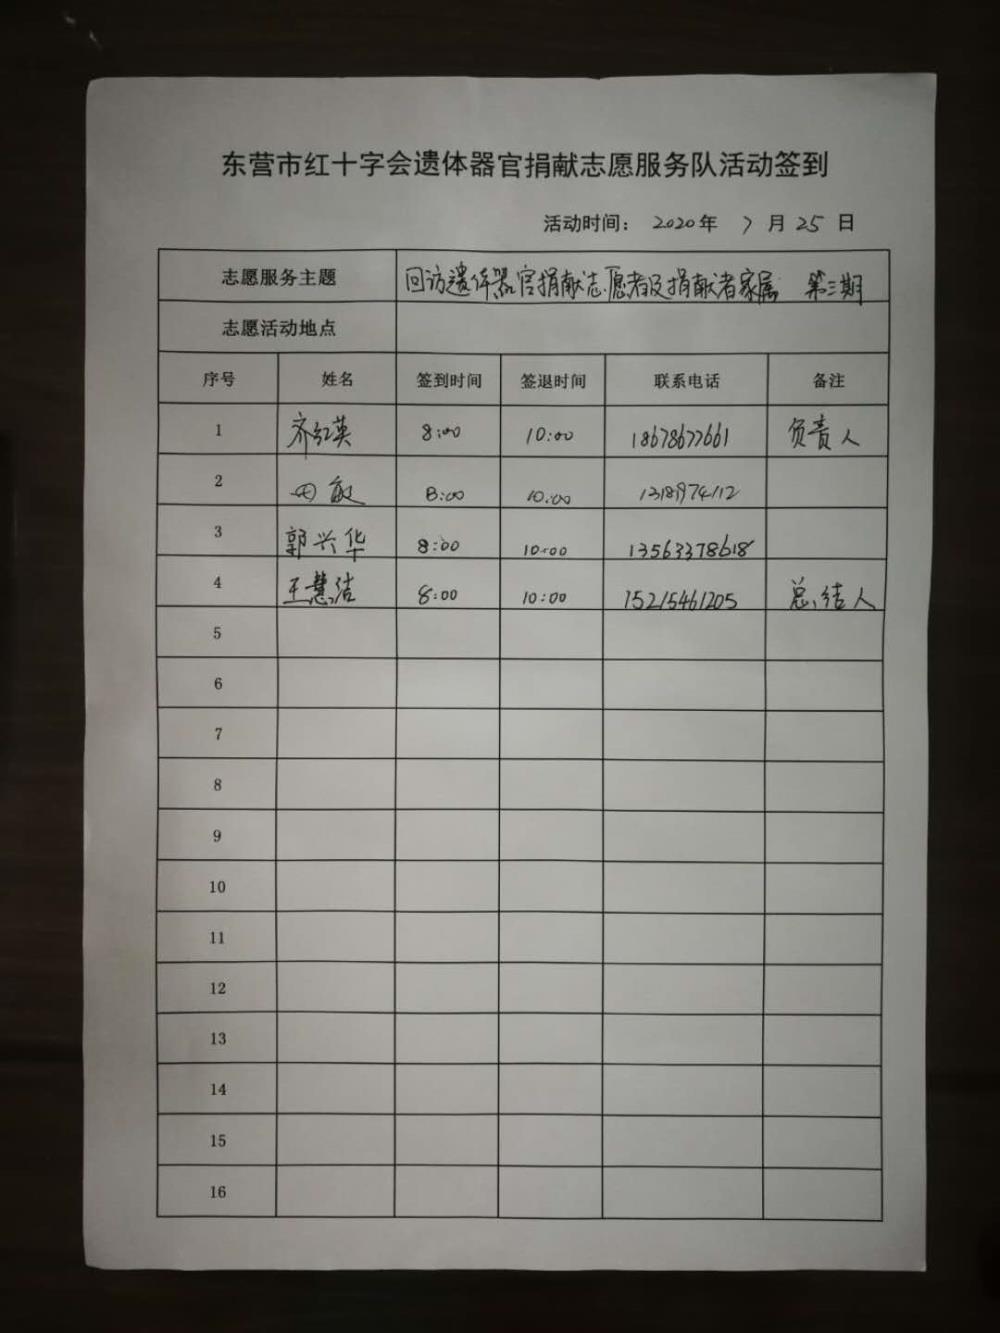 东营市红十字会遗体器官捐献志愿服务队活动签到
活动时间： 2020年 7 月 25 日
志愿服务主题 回访遗体器官捐献志愿者及捐献者家属 第三期
志愿活动地点
序号 姓名 签到时间 签退时间 联系电话 备注
1 齐红英 8:00 10:00 18678677661 负责人
2 田敏 8:00 10:00
3 郭兴华 8:00 10:00 13563378618
4 王慧洁 8:00 10:00 15215461205 总结人
5
6
7
8
9
10
11
12
13
14
15
16